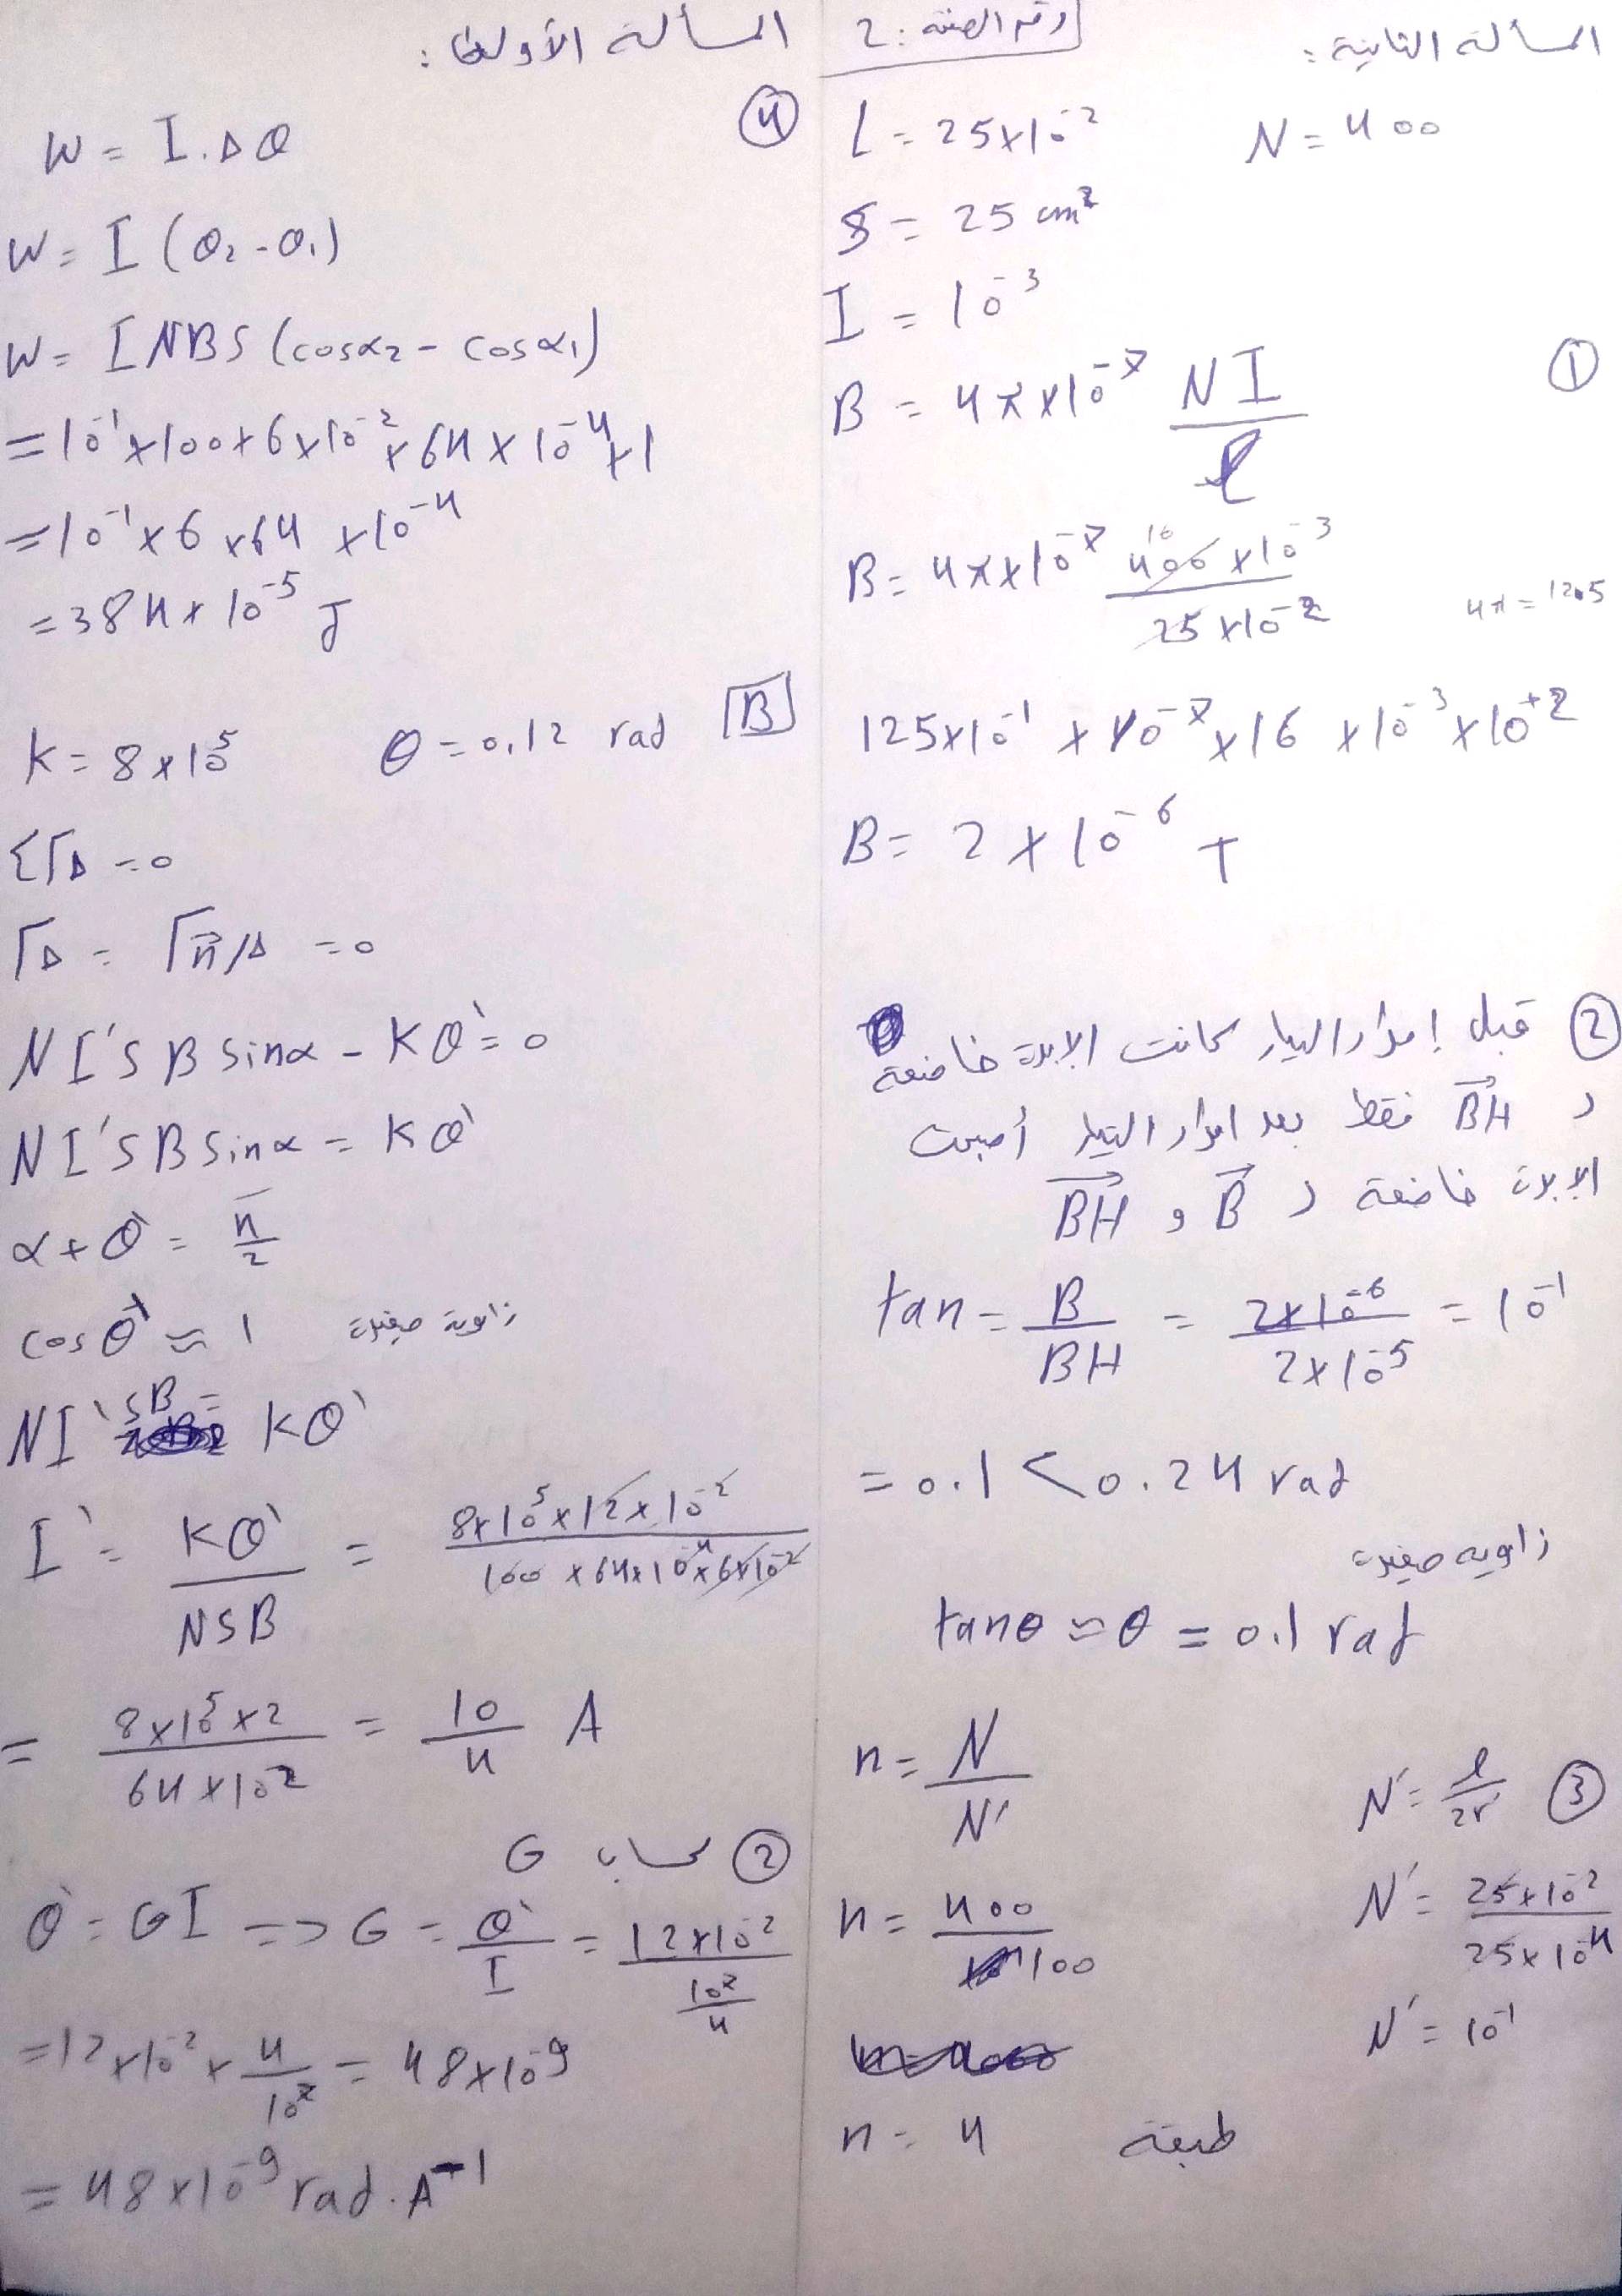 المسألة الأولى:
④
W = I.Δφ
W = I (φ₂ - φ₁)
W = I NBS (cosα₂ - cosα₁)
= 10⁻¹ × 100 × 6 × 10⁻² × 64 × 10⁻⁴ × 1
= 10⁻¹ × 6 × 64 × 10⁻⁴
= 384 × 10⁻⁵ J
B
K = 8 × 10⁻⁵ θ' = 0,12 rad
ΣΓΔ = 0
ΓΔ = Γn/Δ = 0
N I'S B sinα - Kθ' = 0
N I'S B sinα = Kθ'
α + θ' = π/2
cos θ' ≈ 1 زاوية صغيرة
NI' SB = Kθ'
I' = Kθ'/NSB = 8×10⁻⁵×12×10⁻²/100×64×10⁻⁴×6×10⁻²
= 8×10⁻⁵×2/64×10⁻² = 10⁻³/4 A
② حساب G
θ' = GI => G = θ'/I = 12×10⁻²/(10⁻³/4)
= 12×10⁻² × 4/10⁻³ = 48×10⁻⁹
= 48×10⁻⁹ rad.A⁻¹
رقم الصفحة: 2
المسألة الثانية:
L = 25×10⁻² N = 400
S = 25 cm²
I = 10⁻³
①
B = 4π×10⁻⁷ NI/ℓ
B = 4π×10⁻⁷ 400×10⁻³/25×10⁻² 4π = 12.5
125×10⁻¹ × 10⁻⁷ × 16 × 10⁻³ × 10⁺²
B = 2 × 10⁻⁶ T
② قبل إمرار التيار كانت الابرة خاضعة
ل BH فقط بعد امرار التيار أصبحت
الابرة خاضعة ل B و BH
tan = B/BH = 2×10⁻⁶/2×10⁻⁵ = 10⁻¹
= 0.1 < 0.24 rad
زاوية صغيرة
tanθ ≈ θ = 0.1 rad
③
n = N/N' N' = ℓ/2r
n = 400/100 N' = 25×10⁻²/25×10⁻⁴
N' = 10⁻¹
n = 4 طبقة